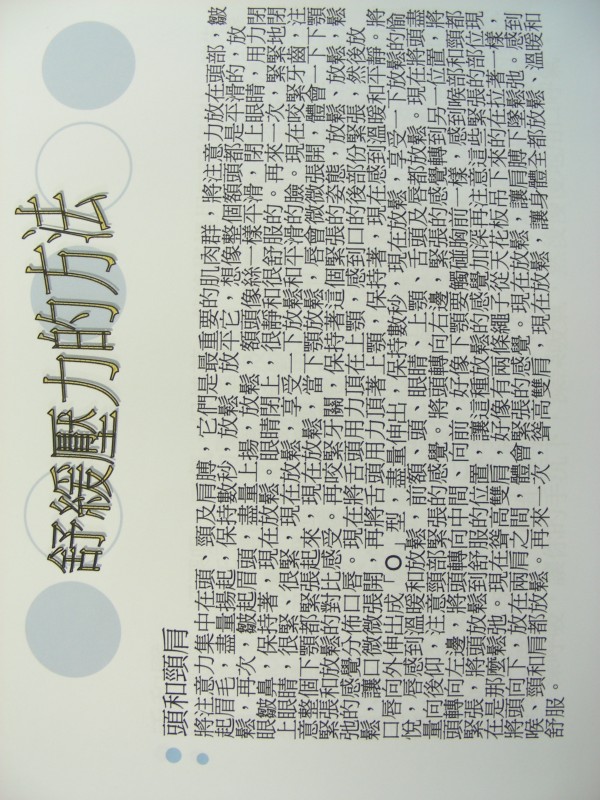 舒緩壓力的方法
頭和頸肩
將注意力集中在頭、頸及肩膊，它們是最重要的肌肉群，將注意力放在頭部，皺
起眉毛，盡量揚起，保持數秒，放鬆，放平它，想像整個額頭都是平滑的，放
鬆，再次，皺起眉頭，盡量上揚，放鬆，額頭像絲一樣平滑，閉上眼睛，用力閉
眼皺鼻，保持著，現在放鬆。眼睛閉上，很靜和很舒服的。再來一次，緊緊地閉
上眼睛，很緊、很緊，現在放鬆，享受一下放鬆和平滑的臉。現在咬緊牙齒，注
意整個下顎都緊張起來，現在放鬆，當下顎放鬆，唇會微微張開，體會一下下顎
緊張和放鬆的對比感受。再咬緊牙關，保持著這個緊張的姿態，放鬆，鬆
弛的感覺分佈口唇。現在將舌頭用力頂在上顎，感到口的後部份緊張，然後放
鬆，讓口微微張開，再將舌頭用力頂著上顎，保持著，現在感到溫暖和平靜。將
口唇向外伸出成「O」型，盡量伸出，保持數秒，現在放鬆，享受一下放鬆的愉
悅，唇感到溫暖和放鬆，前額、頭、眼睛、上顎、舌頭及唇都放鬆。現在將頭盡
量向後仰，注意頸部緊張的感覺。將頭轉向右邊，緊張的感覺轉到另一位置，將
頭轉向左邊，將頭轉向中間、向前，好像下顎要觸碰胸前一樣，感到喉部和頸都
緊張，將頭放鬆到舒服的位置，讓這種放鬆的感覺加深再注意這些緊張的部位現
在是那麼鬆弛。現在聳高雙肩，好像有兩條繩子從天花板吊下來的在拉著一樣，
將頭向下，放在兩肩之間，體會緊張的感覺。現在放鬆，讓肩膊下墜鬆弛。感到
喉、頸和肩都放鬆。再來一次，聳高雙肩，現在放鬆，讓身體全都放鬆、溫暖和
舒服。